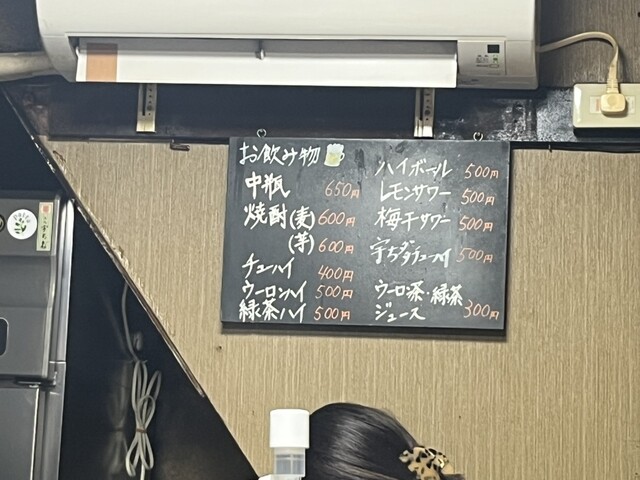 お飲み物
中瓶 650円
焼酎(麦) 600円
(芋) 600円
チューハイ 400円
ウーロンハイ 500円
緑茶ハイ 500円
ハイボール 500円
レモンサワー 500円
梅干サワー 500円
宇ち多゛チューハイ 500円
ウーロン茶・緑茶
ジュース 300円